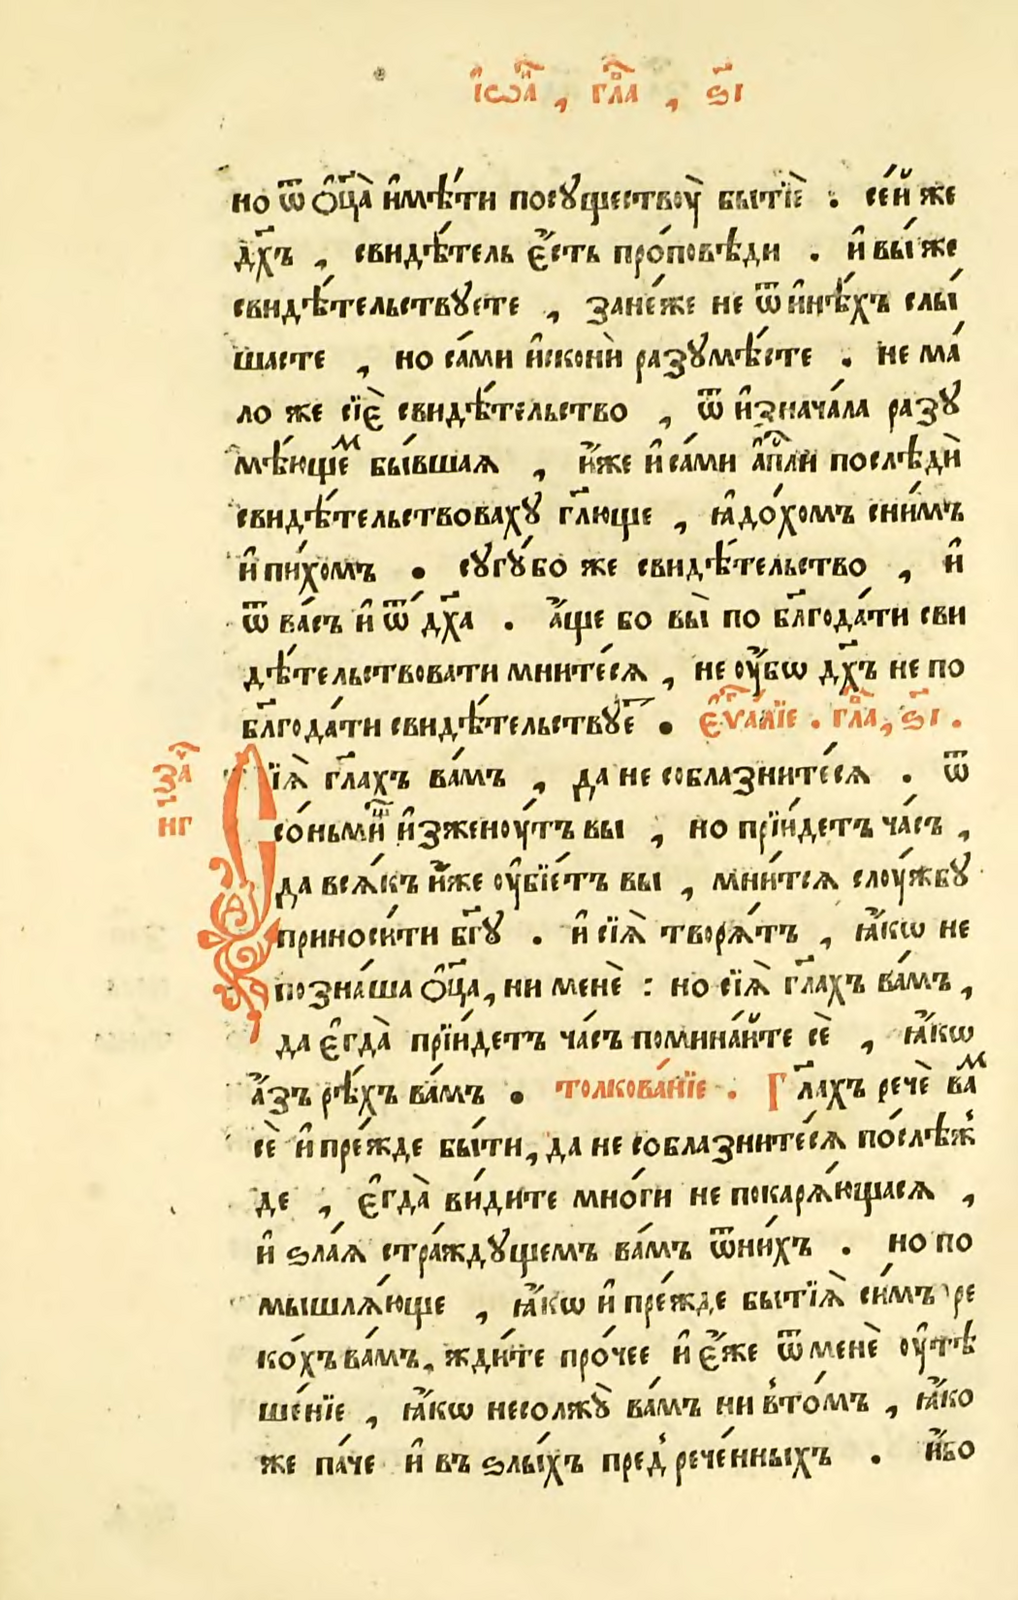 і҆ѡа҃ , гла҃ , ѕ҃і
но ѿ ѻ҆ц҃а̀ и҆мѣ́ти посꙋществоу̀ бытїѐ . се́й же
дх҃ъ , свидѣ́тель є҆́сть про́повѣди . и҆ вы́ же
свидѣ́тельствꙋете , зане́же не ѿ и҆нѣ́хъ слы́
шасте , но са́ми и҆сконѝ разꙋмѣ́сте . не ма́
ло же сїѐ свидѣ́тельство , ѿ и҆знача́ла разꙋ
мѣ́ющеⷨ бы́вшая , и҆́же и҆ са́ми а҆пⷭ҇ли послѣдѝ
свидѣ́тельствовахꙋ гл҃юще , ꙗ҆до́хомъ сни́мъ
и҆ пи́хомъ . сꙋгꙋ́бо же свидѣ́тельство , и҆
ѿ ва́съ и҆ ѿ дх҃а . а҆́ще бо вы̀ по бл҃года́ти сви
дѣ́тельствовати мните́сѧ , не ᲂу҆́бѡ дх҃ъ не по
бл҃года́ти свидѣ́тельствꙋеⷮ . є҆ѵⷢ҇а́лїе . гла҃ , ѕ҃і .
за҃
н҃г
Сїѧ̀ гл҃ахъ ва́мъ , да не соблазните́сѧ . ѿ
со́ньмиⷳ и҆зженꙋ́тъ вы , но прїи́детъ ча́съ ,
да всѧ́къ и҆́же ᲂу҆бїе́тъ вы , мни́тсѧ слꙋ́жбꙋ
приноси́ти бг҃ꙋ . и҆ сїѧ̀ творѧ́тъ , ꙗ҆́кѡ не
позна́ша ѻ҆ц҃а , ни менѐ : но сїѧ̀ гл҃ахъ ва́мъ ,
да є҆гда̀ прїи́детъ ча́съ помина́йте сѐ , ꙗ҆́кѡ
а҆́зъ рѣ́хъ ва́мъ . толкова́нїе . Гл҃ахъ речѐ ваⷨ
сѐ и҆ пре́жде бы́ти , да не соблазните́сѧ по́слѣж
де , є҆гда̀ ви́дите мно́ги не покарѧ́ющасѧ ,
и҆ ѕла́ѧ стра́ждꙋщемъ ва́мъ ѿни́хъ . но по
мышлѧ́юще , ꙗ҆́кѡ и҆ пре́жде бытїѧ̀ си́мъ ре
ко́хъ ва́мъ , жди́те про́чее и҆ є҆́же ѿ менѐ ᲂу҆тѣ
ше́нїе , ꙗ҆́кѡ несолжꙋ̀ ва́мъ ни вто́мъ , ꙗ҆́ко
же па́че и҆ въ ѕлы́хъ пред̾рече́нныхъ . и҆́бо